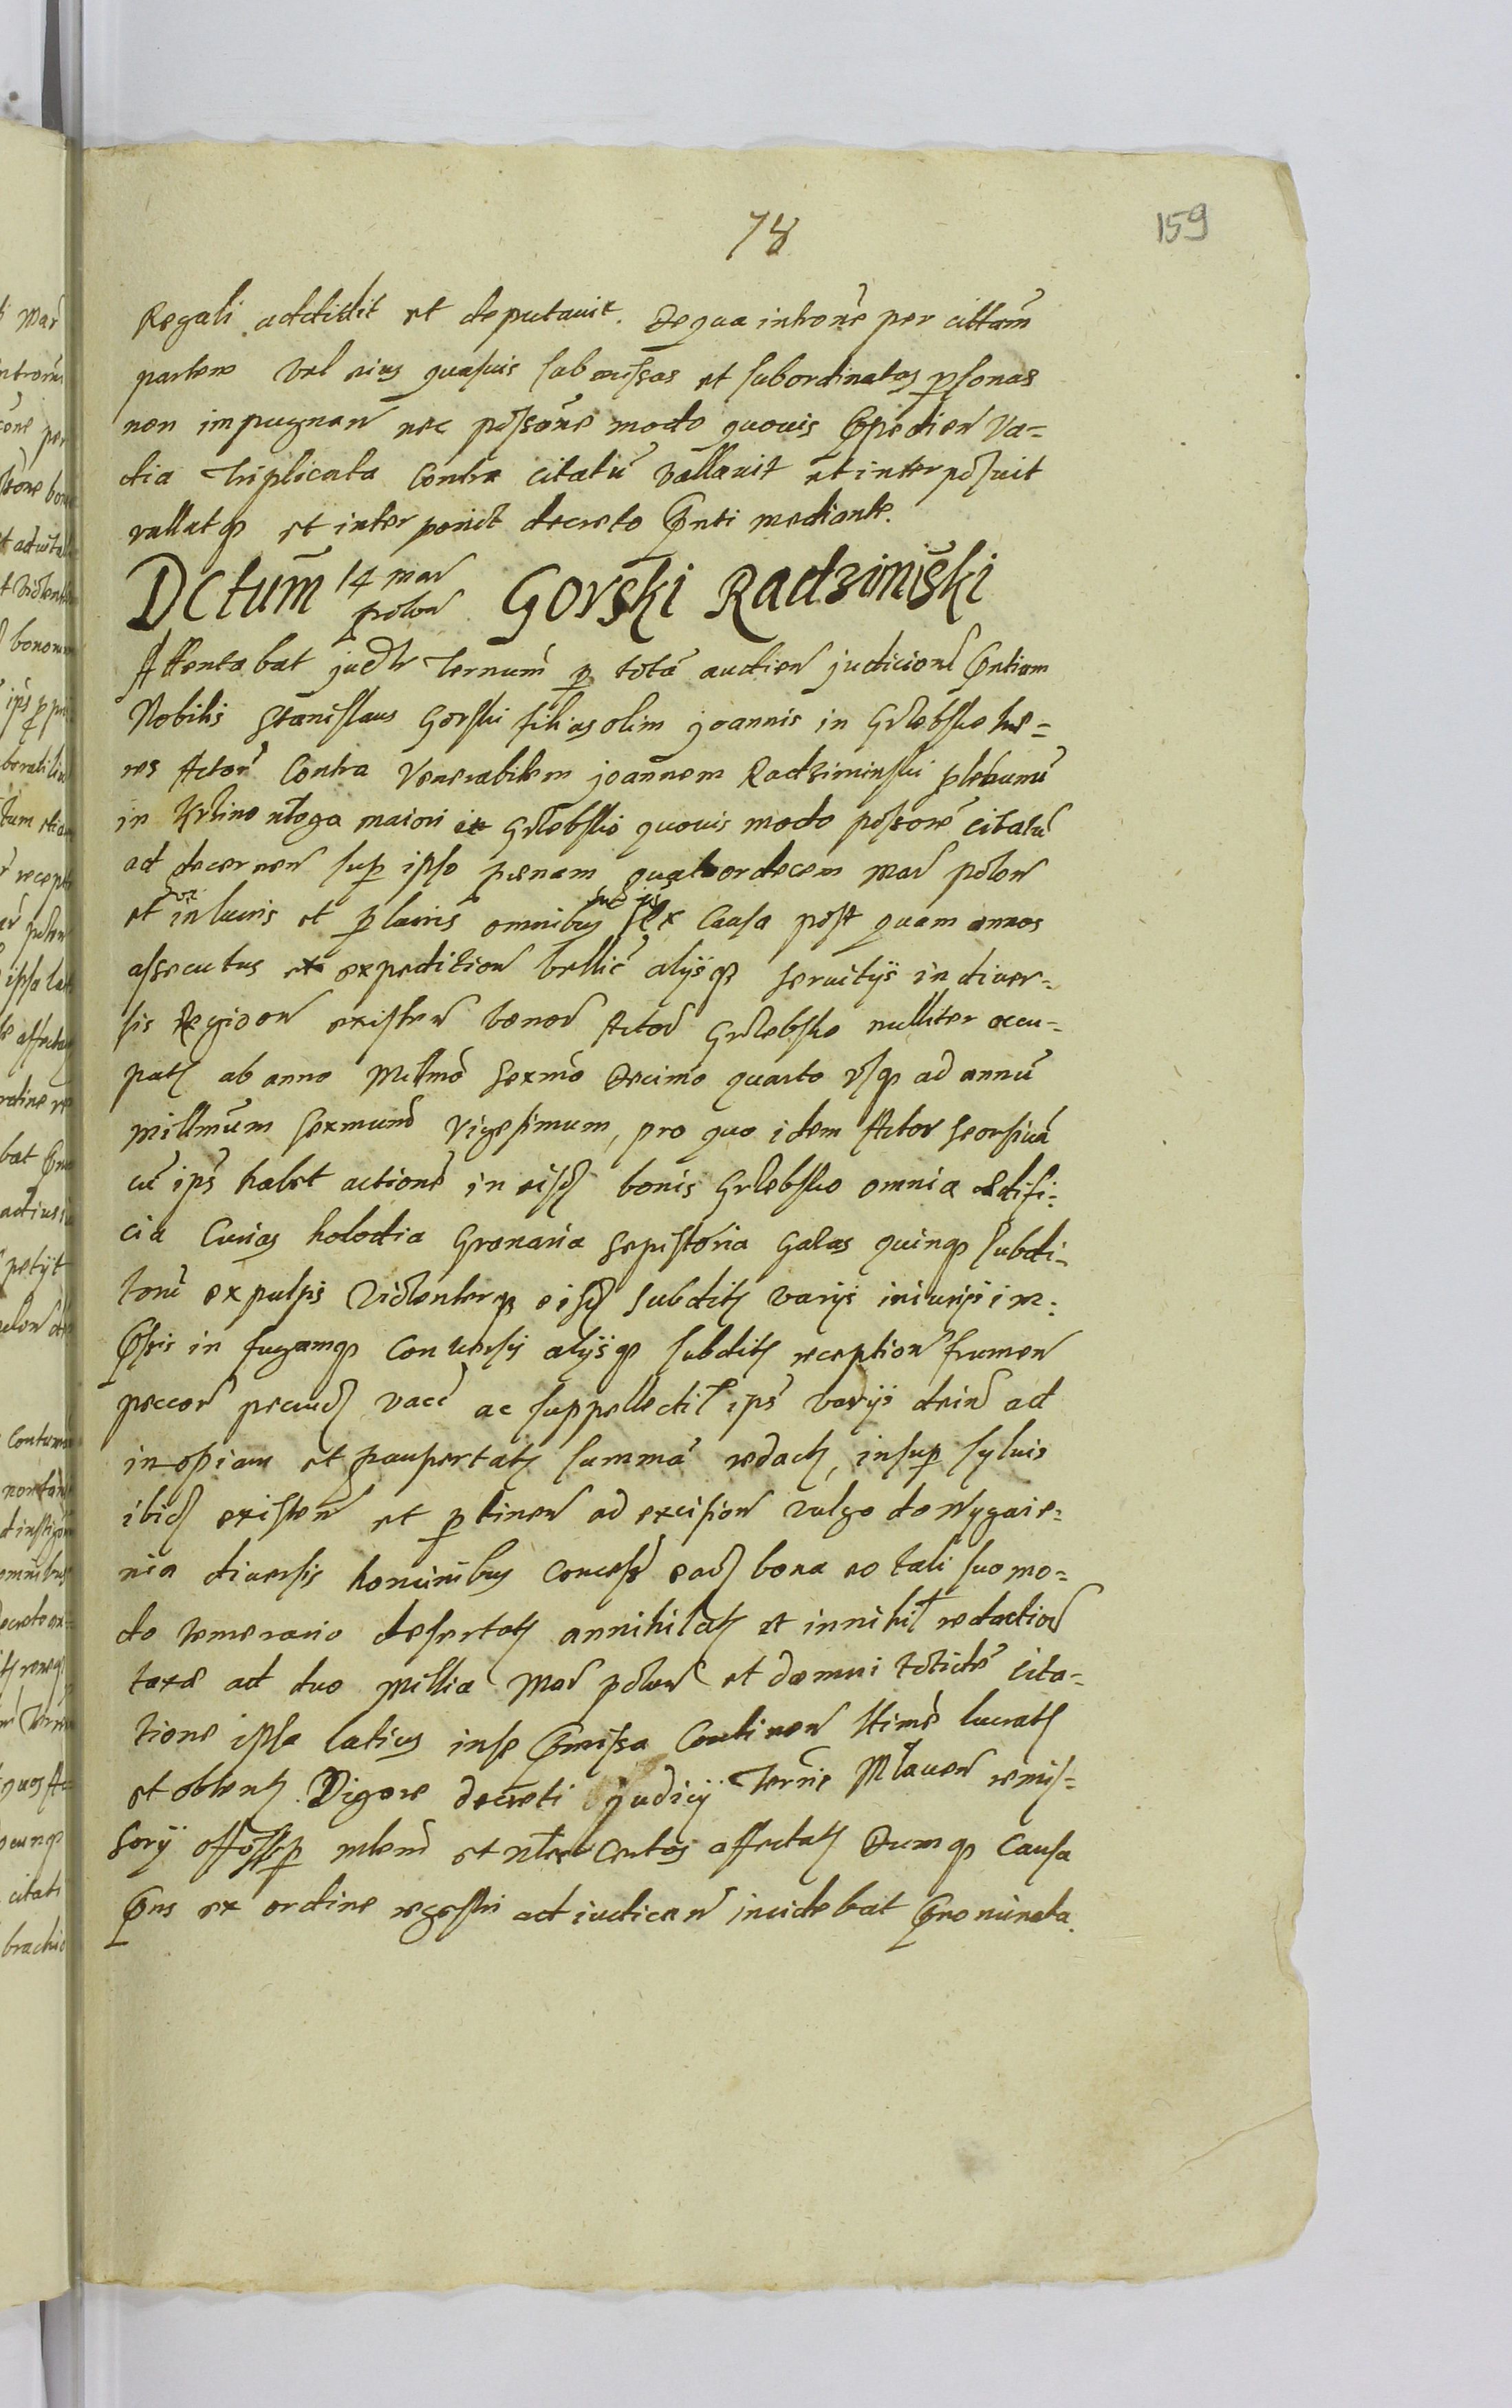 78
159
Regali addidit et deputauit. De qua introne per cittam
partem vel eius quasuis submissas et subordinatas psonas
non impugnan nec possone modo quouis Impedien va=
dia triplicata contra citatu vallauit et interposuit
vallatq et interponit decreto Pnti mediante.
DCtum 14 mar polon Gorski Radziminski
Attentabat judtr ternum p tota audien judiciord Pntiam
Nobilis Stanislaus Gorski filius olim Joannis in Grlebsko hæ=
res Actor Contra Venerabilem Joannem Radziminski plebanu
in maiori Grlebsko quouis modo possore citatu
ad decernen sup ipso pænam quatuordecem mar polon
et in lucris et plucris omnibus ex causa post quam annos
assecutus expedition bellic alijsq seruitijs in diuer=
sis Region existen bonor Actor Grlebsko nulliter occu=
pat ab anno Millmo Sexmo Decimo quarto vsq ad annu
millmum sexmum vigesimum, pro quo idem Actor seorsiua
cu ips habet actione in eisd bonis Grlebsko omnia ædifi=
cia Curias holodia Granaria Sepistoria Galas quinq subdi=
toru expulsis violenterq eisd subdit varijs iniurijs im=
Pssis in fugamq conuersis alijsq subdit reception frumen
peccor pecud vacc ac suppellectil ips varijs dein ad
inopiam et paupertat summa redact, insup syluis
ibid existen et ptinen ad excision vulgo do Wygaie=
nia diuersis hominibus concess ead bona eo tali suo mo=
do temerario desertat annihilat et in nihil redaction
taxæ ad duo millia Mar polon et damni totide cita=
tione ipsa latius in se Pmissa continen ttime lucrat
et obtent. Vigore decreti Judicij Terrie Mlauen remis=
sorij affectat Cumq causa
Pns ex ordine regestri adiudican incidebat Pnominata